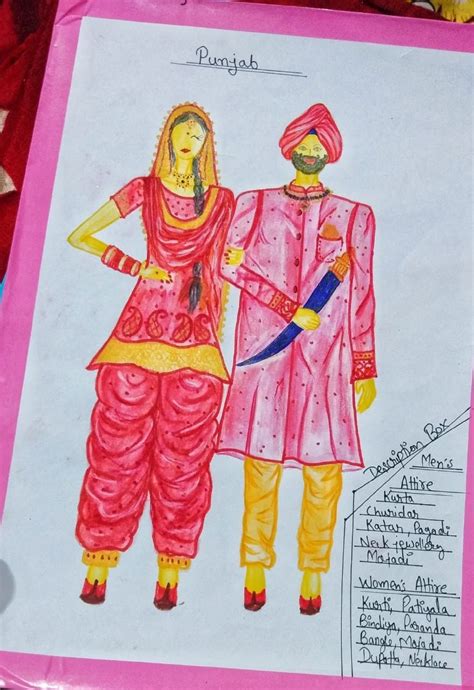 Punjab
Description Box
Men's
Attire
Kurta
Churidar
Katar Pagadi
Neck jewellery
Mojadi
Women's Attire
Kurti, Patiyala
Bindiya, Paranda
Bangle, Mojadi
Dupatta, Necklace